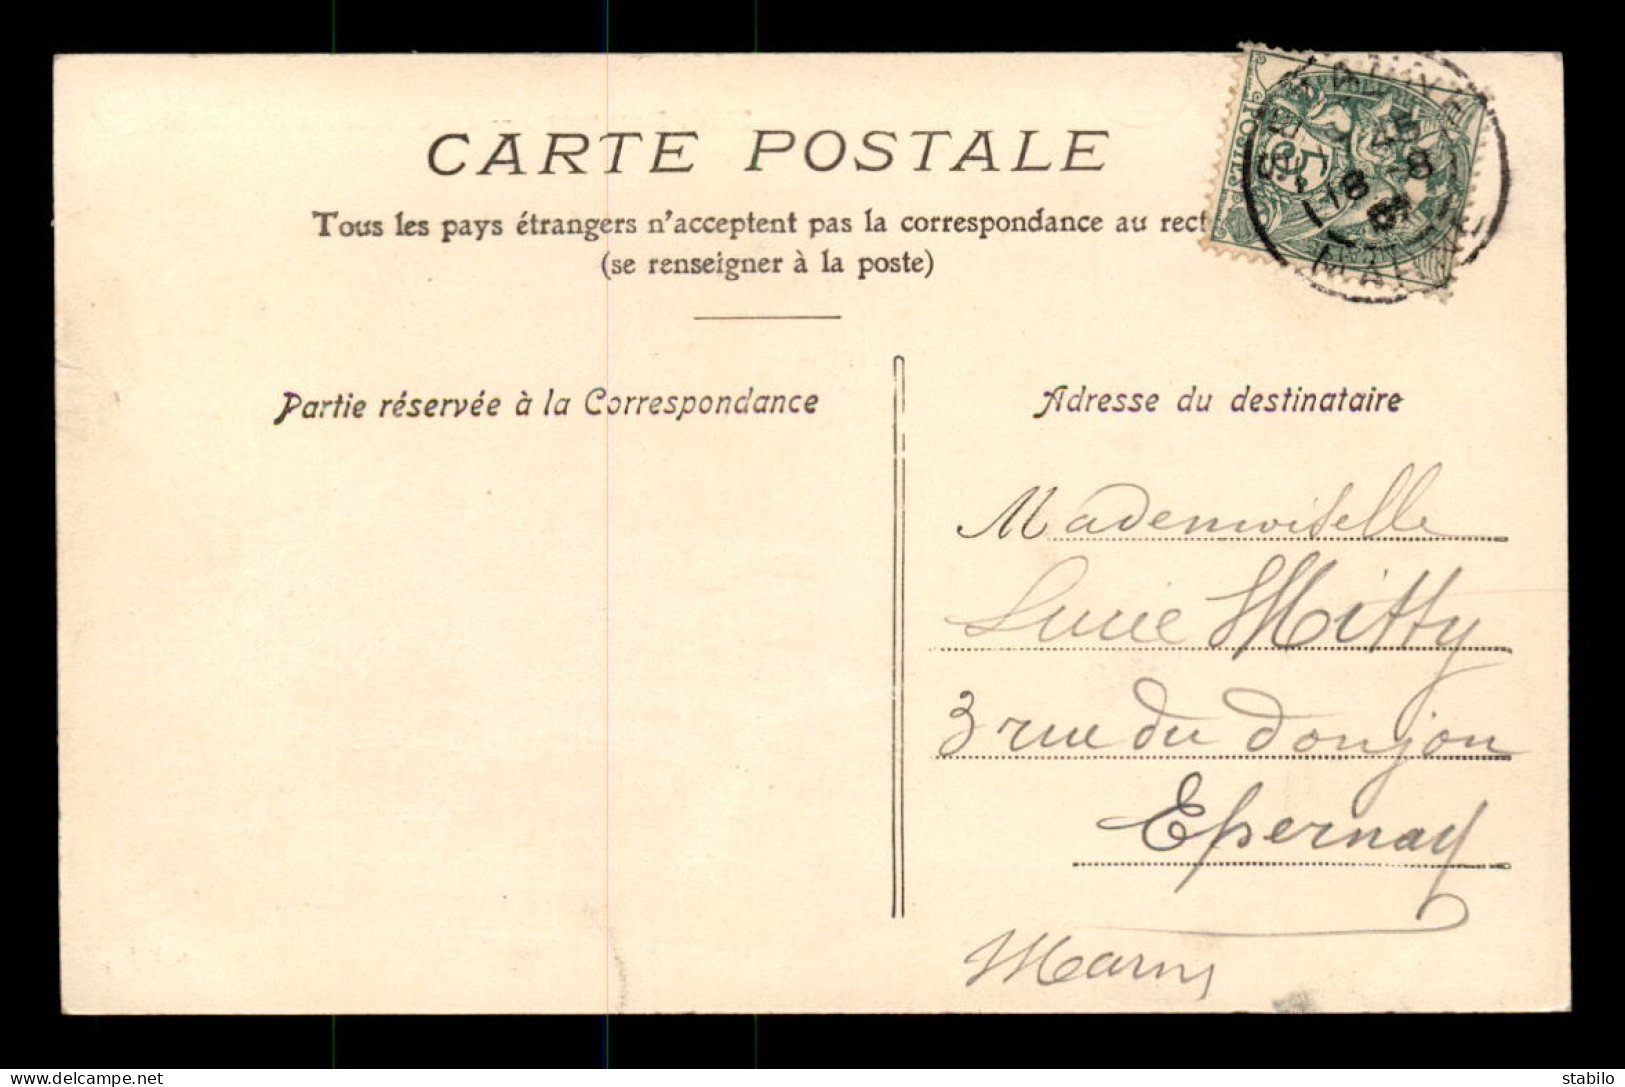 CARTE POSTALE
Tous les pays étrangers n'acceptent pas la correspondance au rect
(se renseigner à la poste)
Partie réservée à la Correspondance
Adresse du destinataire
Mademoiselle
Lucie Mitty
3 rue du donjon
Epernay
Marne
5
POSTES
18 -8
MARNE
stabilo